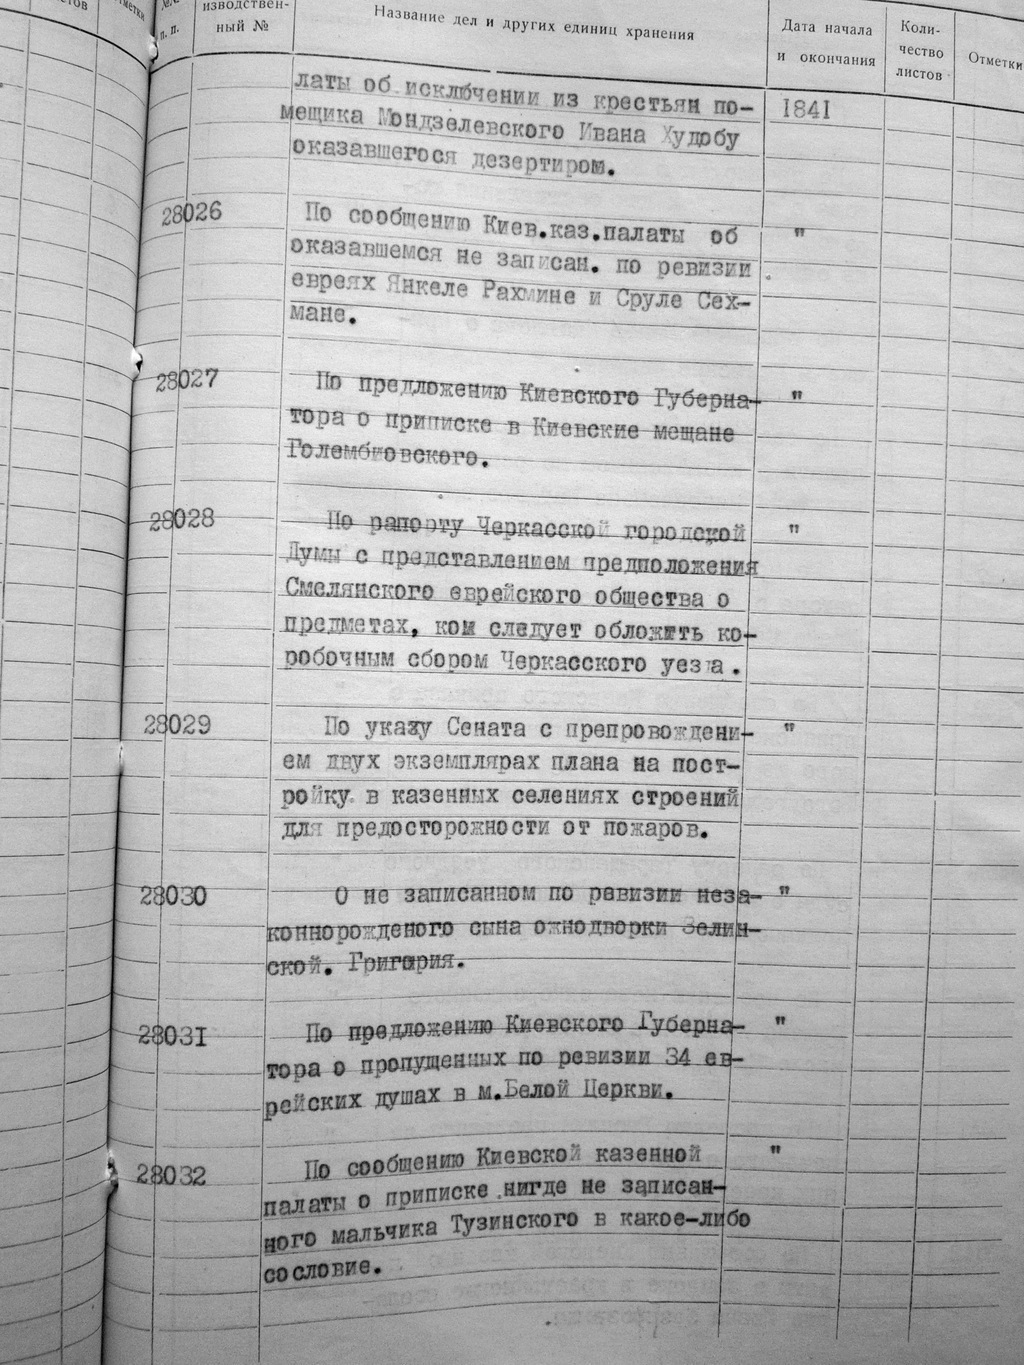 №№ п. п.
изводствен-
ный №
Название дел и других единиц хранения
Дата начала
и окончания
Коли-
чество
листов
Отметки
латы об исключении из крестьян по- 1841
мещика Мондзелевского Ивана Худобу
оказавшегося дезертиром.
28026 По сообщению Киев.каз.палаты об "
оказавшемся не записан. по ревизии
евреях Янкеле Рахмине и Сруле Сех-
мане.
28027 По предложению Киевского Губерна- "
тора о приписке в Киевские мещане
Голембиовского.
28028 По рапорту Черкасской городской "
Думы с представлением предположения
Смелянского еврейского общества о
предметах, кои следует обложить ко-
робочным сбором Черкасского уезда.
28029 По указу Сената с препровождени- "
ем двух экземплярах плана на пост-
ройку в казенных селениях строений
для предосторожности от пожаров.
28030 О не записанном по ревизии неза- "
коннорожденого сына однодворки Зелин-
ской. Григория.
28031 По предложению Киевского Губерна- "
тора о пропущенных по ревизии 34 ев-
рейских душах в м.Белой Церкви.
28032 По сообщению Киевской казенной "
палаты о приписке нигде не записан-
ного мальчика Тузинского в какое-либо
сословие.